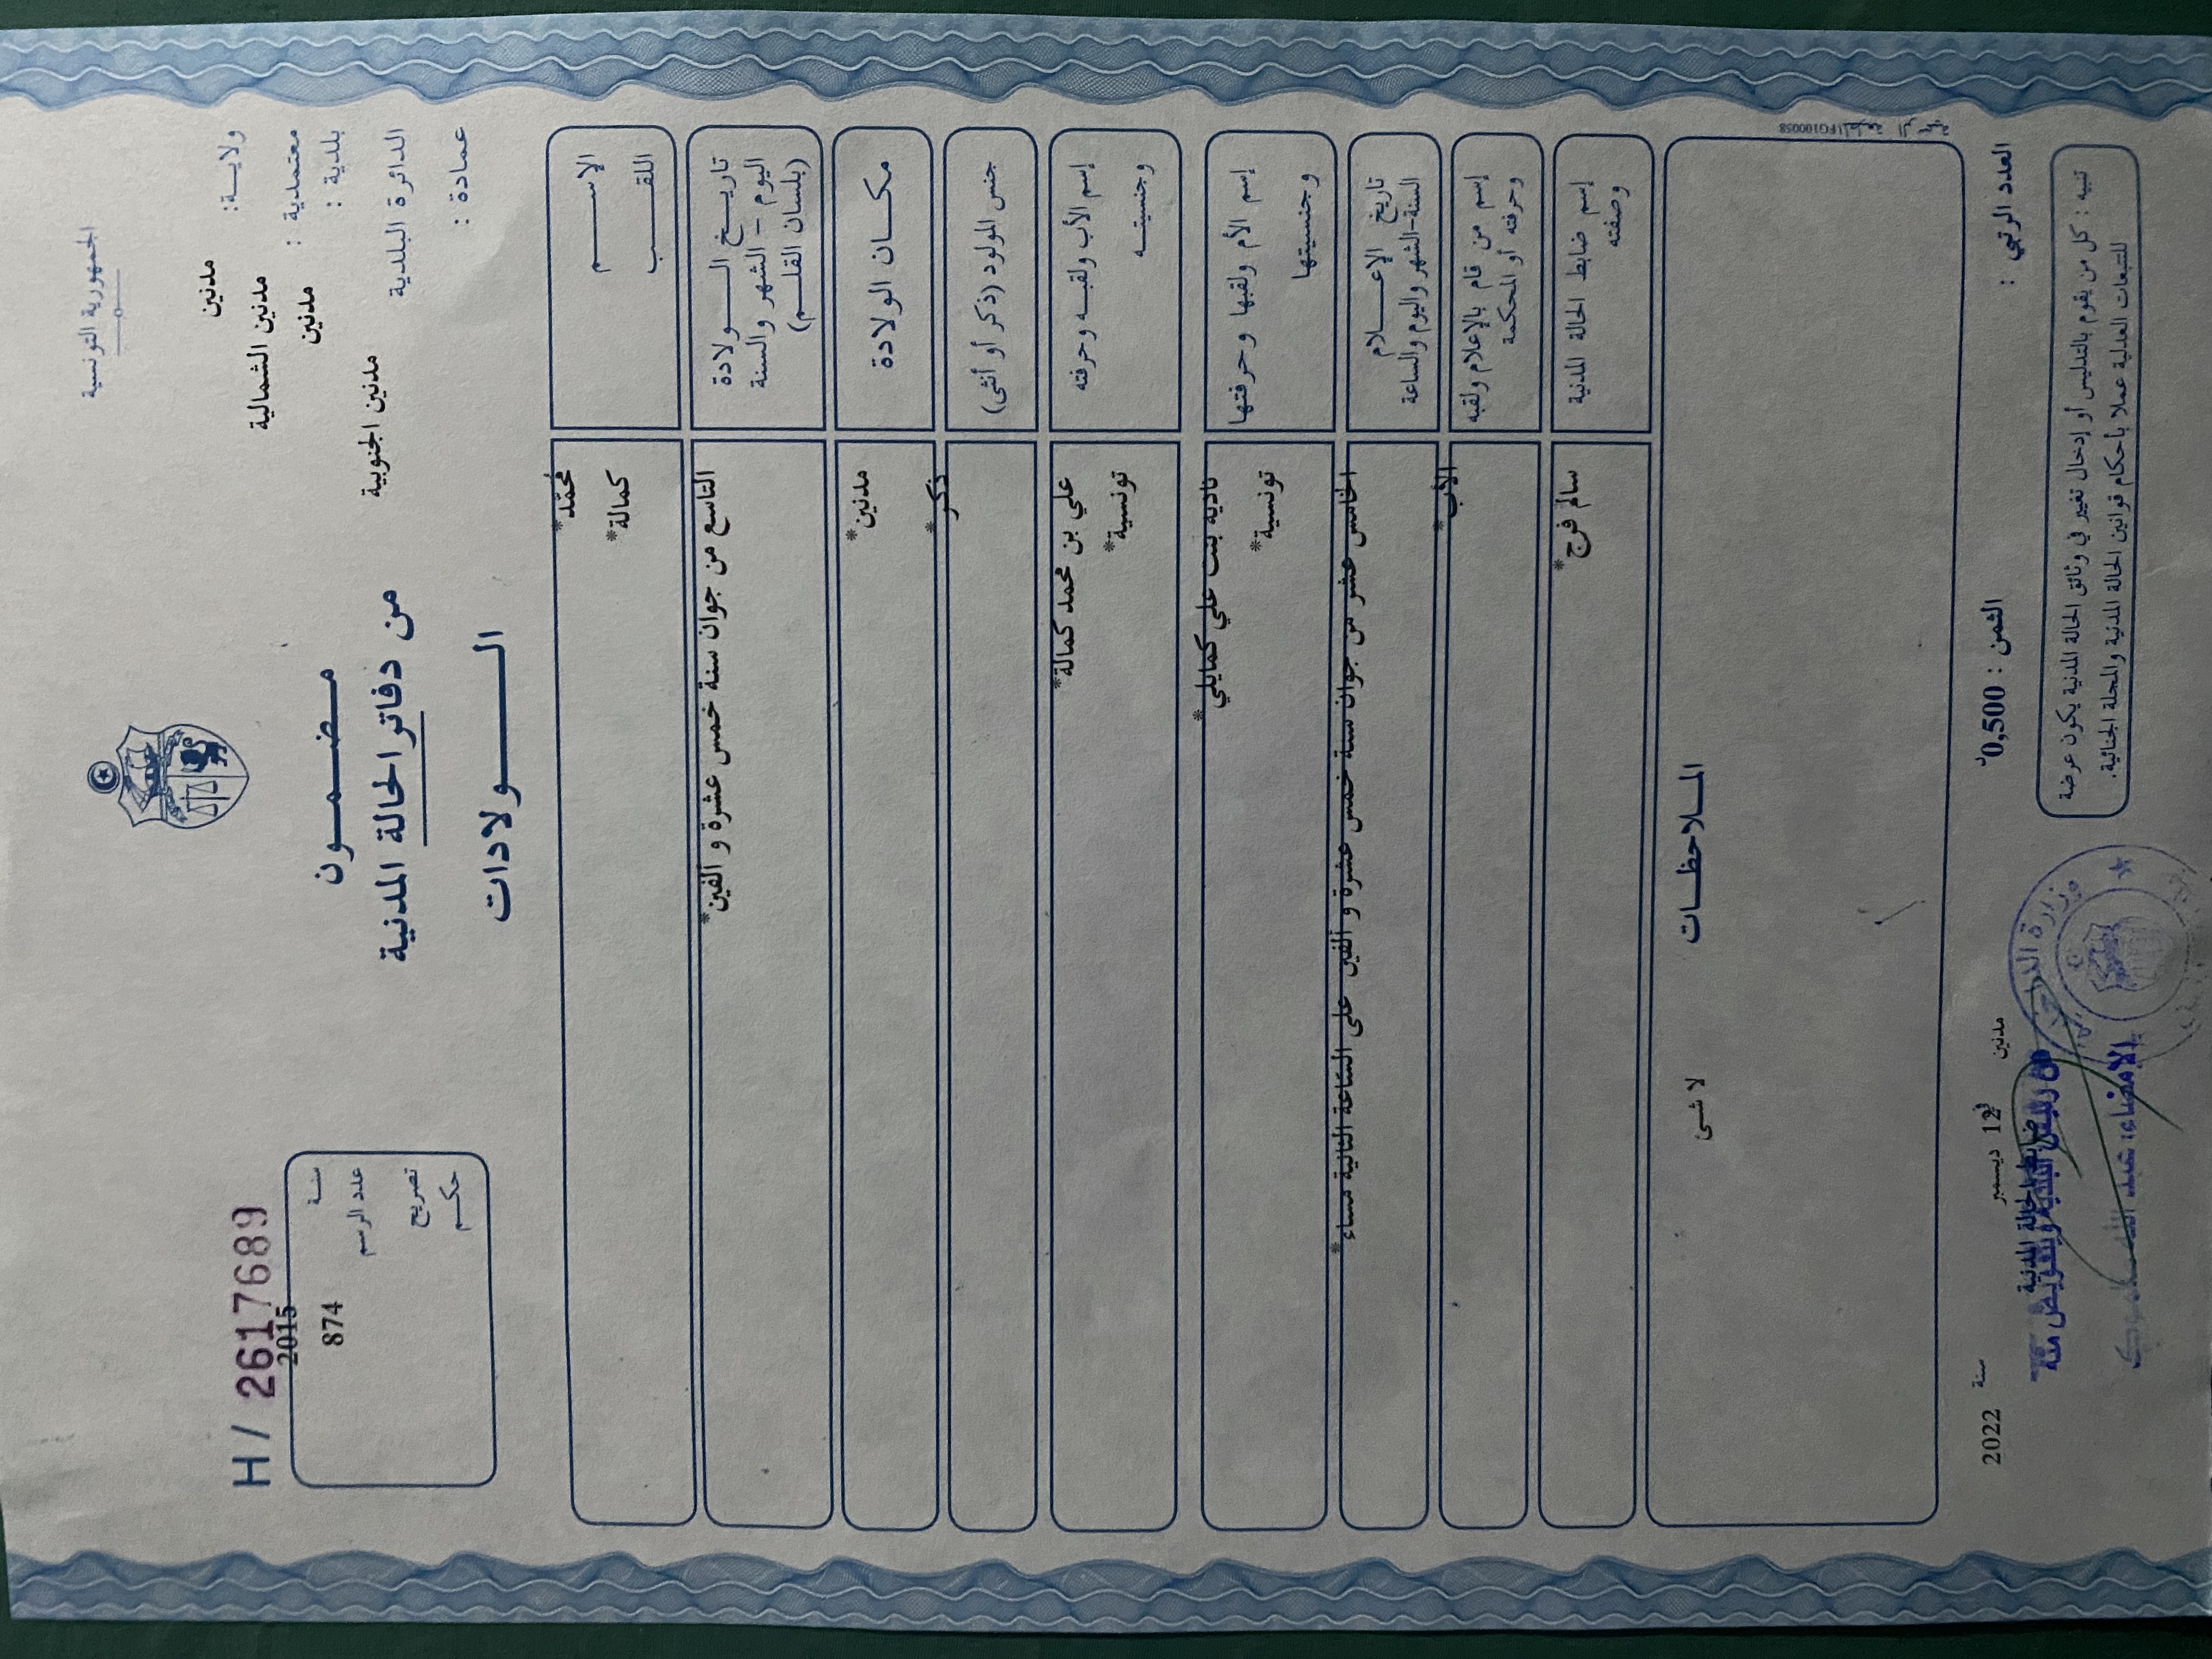 الجمهورية التونسية
ولايــة: مدنين
معتمدية : مدنين الشمالية
بلدية : مدنين
الدائرة البلدية مدنين الجنوبية
عمادة :
مـضـمـون
من دفاتر الحالة المدنية
الــولادات
H/ 2617689
سنة 2015
عدد الرسم 874
تصريح
حكم
الاســـم محمّد*
اللقـــب كمالة*
تاريـــخ الـــولادة
اليوم - الشهر والسنة
(بلسان القلــم)
التاسع من جوان سنة خمس عشرة و ألفين*
مكــان الولادة مدنين*
جنس المولود (ذكر أو أنثى) ذكر*
إسم الأب ولقبــه وحرفته علي بن محمد كمالة*
وجنسيتــه تونسية*
إسم الأم ولقبها وحرفتها نادية بنت علي كمايلي*
وجنسيتها تونسية*
تاريخ الإعــلام
السنة-الشهر واليوم والساعة
الخامس عشر من جوان سنة خمس عشرة و ألفين على الساعة الثانية مساء*
إسم من قام بالإعلام ولقبه
وحرفته أو المحكمة
الأب*
إسم ضابط الحالة المدنية سالم فرج*
وصفته
الملاحظــات
لا شئ
المطبعة الرسمية FG100058
العدد الرتبي :
الثمن : 0,500د
مدنين في 12 ديسمبر سنة 2022
ضابط الحالة المدنية
عن رئيس البلدية وبتفويض منه
الإمضاء:
وزارة الداخلية
تنبيه : كل من يقوم بالتدليس أو إدخال تغيير في وثائق الحالة المدنية يكون عرضة
للتتبعات العدلية عملا بأحكام قوانين الحالة المدنية والمجلة الجنائية.